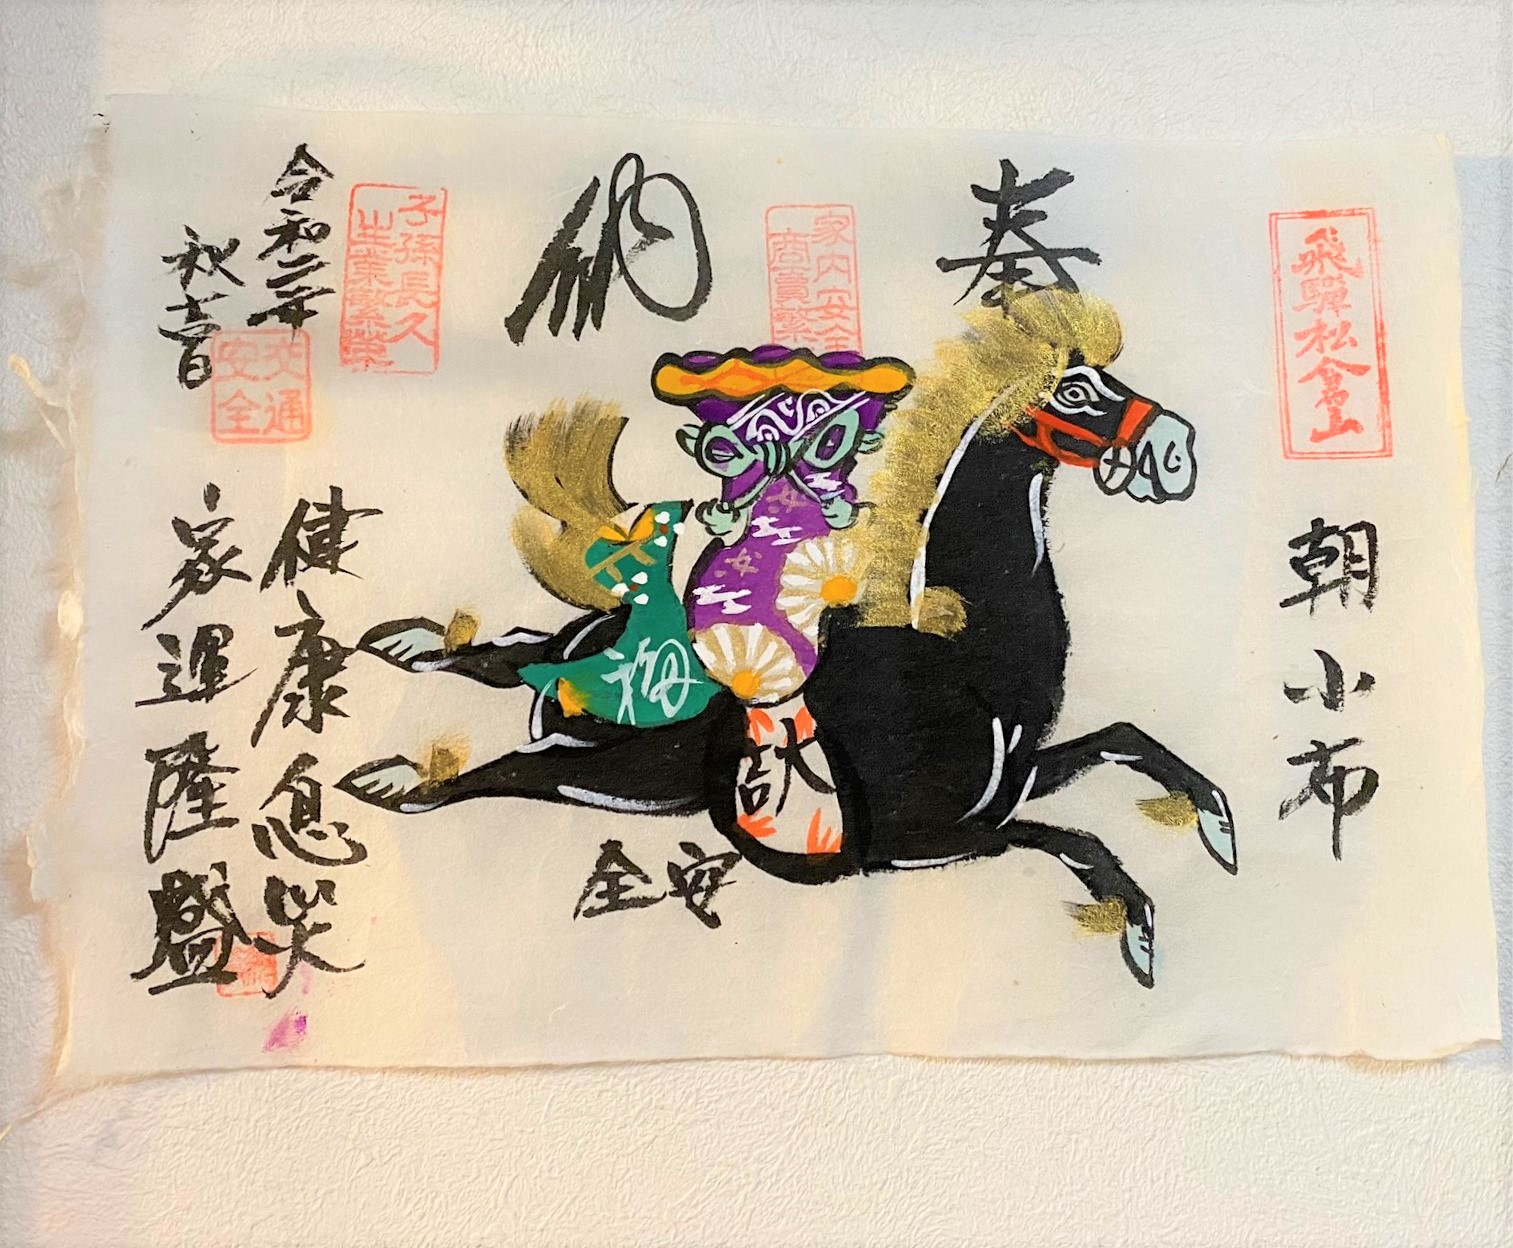 飛騨松倉山
朝小布
奉
納
家内安全
商賣繁
子孫長久
生業繁栄
令和二年
秋吉日
交通
安全
健康息災
家運隆盛
安全